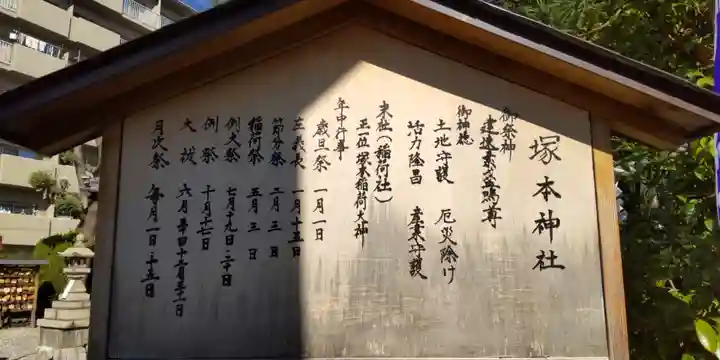 塚本神社
御祭神
建速素盞嗚尊
御神徳
土地守護 厄災除け
活力隆昌 産業守護
末社(稲荷社)
正一位塚本稲荷大神
年中行事
歳旦祭 一月一日
左義長 一月十五日
節分祭 二月三日
稲荷祭 五月三日
例大祭 七月十九日・二十日
例祭 十月十七日
大祓 六月三十日 十二月三十一日
月次祭 毎月一日・十五日